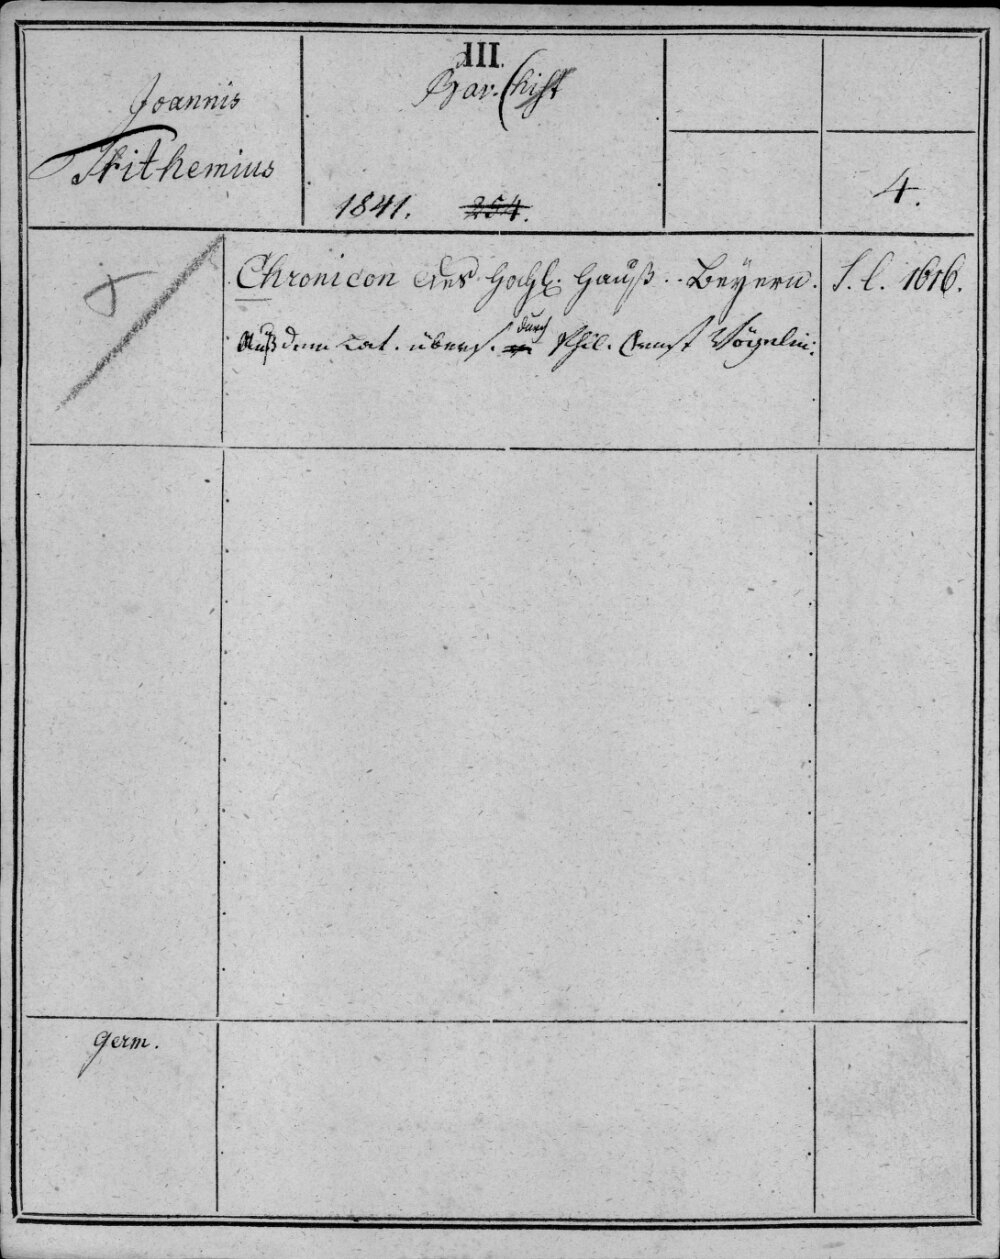 III.
Joannis
Bav. (hist
Trithemius
4.
1841. 254.
Chronicon des Hochl. Hauß .. Beyern. S. l. 1616.
Auß dem Lat. übers. durch Phil. Ernst Vögelin.
germ.